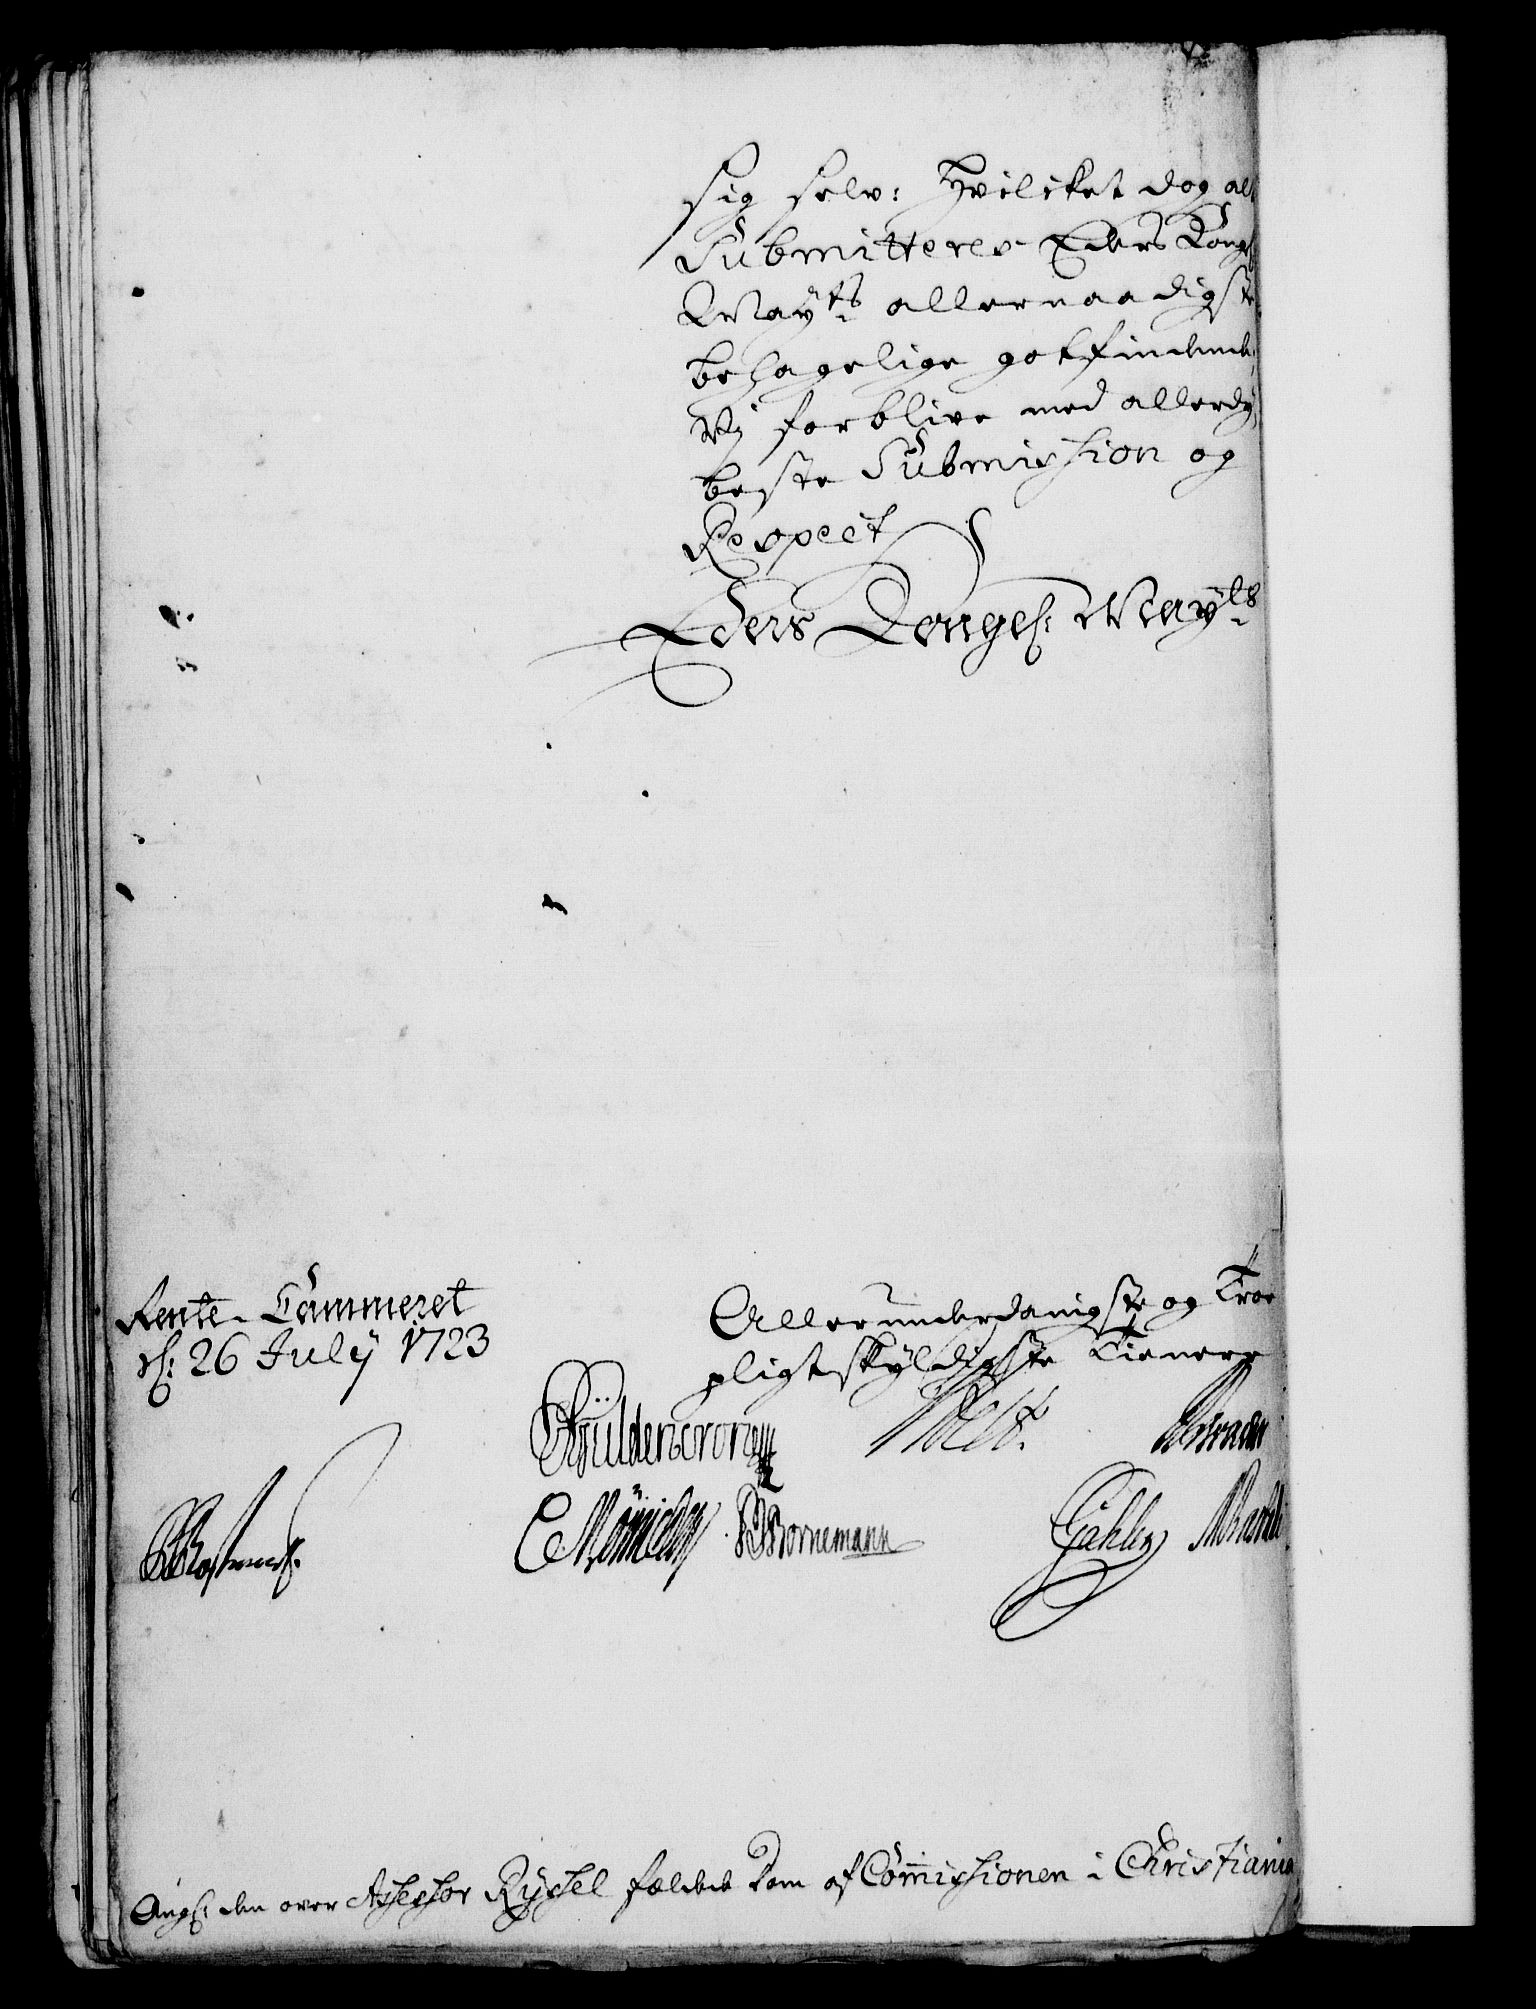 sig selv: hvilcket dog alt
Submitteres Eders Kongl
May:ts allernaadigste
behagelige gotfindende,
Vj forblive med allerdy
beste Submission og
Respect
Eders Kongel: May:ts
Rente-Cammeret
d: 26 July 1723
Allerunderdanigste og Troe
pligtskyldigste Tienere
Güldencrone
C Mönnichen Bornemann
Gähler
Ang: den over Assessor Ryssel fældede Dom af Com̄issionen i Christiania